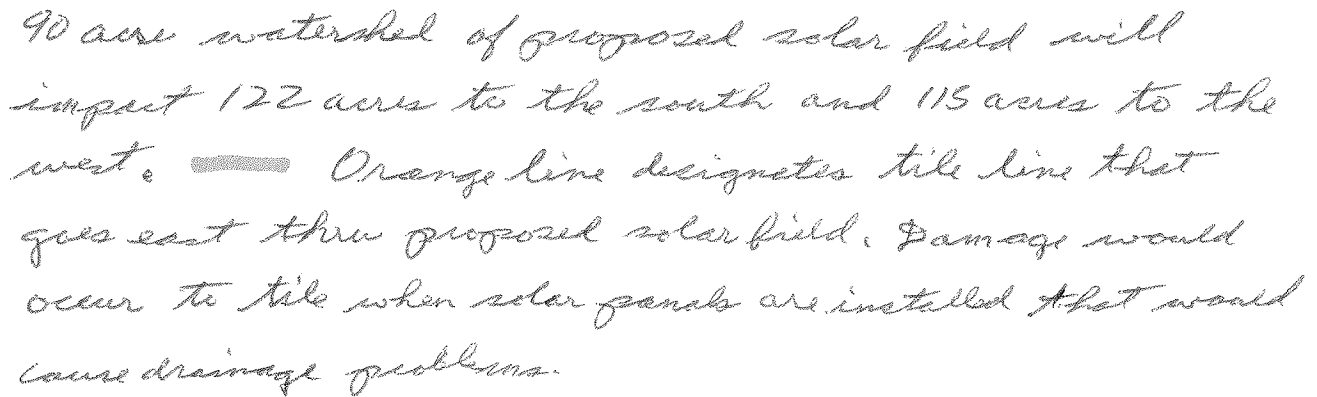 90 acre watershed of proposed solar field will
impact 122 acres to the south and 115 acres to the
west. Orange line designates tile line that
goes east thru proposed solar field. Damage would
occur to tile when solar panals are installed that would
cause drainage problems.